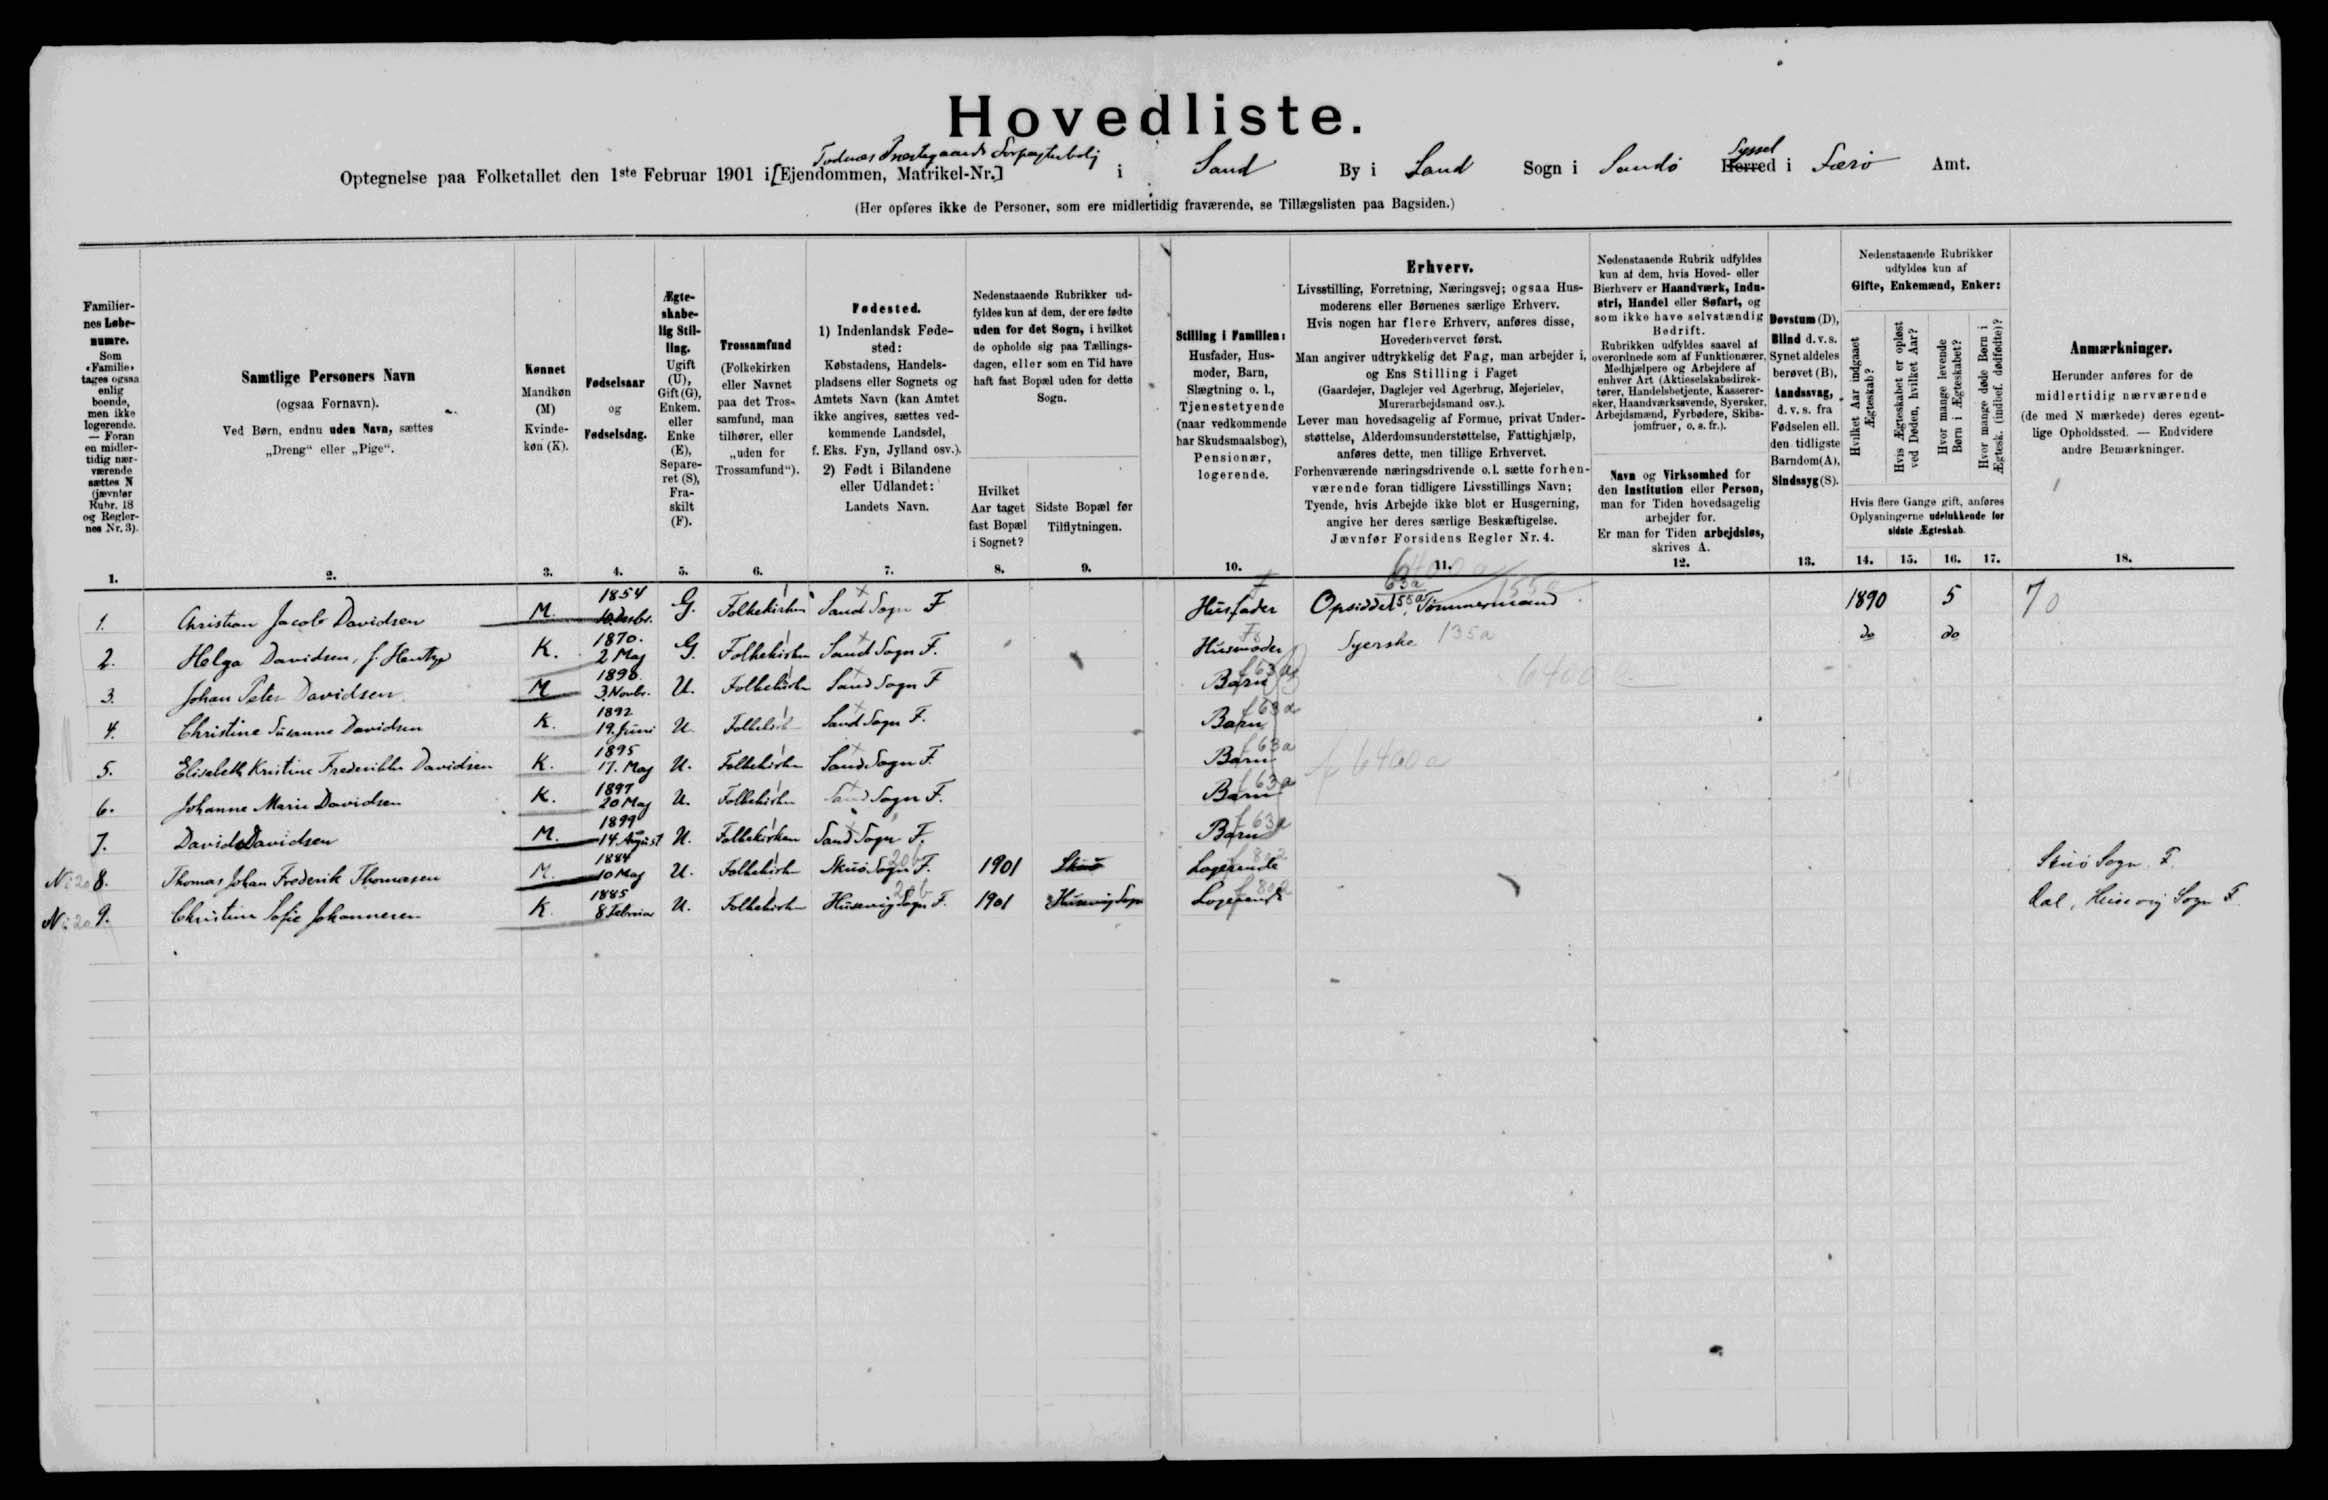 Hovedliste.
Todnæs Præstegaards Forpagterbolig
Optegnelse paa Folketallet den 1ste Februar 1901 i [Ejendommen, Matrikel-Nr.] i Sand By i Sand Sogn i Sandö Syssel Herred i Færö Amt.
(Her opføres ikke de Personer, som ere midlertidig fraværende, se Tillægslisten paa Bagsiden.)
Familiernes Løbenumre.
Som «Familie» tages ogsaa enlig boende, men ikke logerende. — Foran en midlertidig nærværende sættes N (jævnfør Rubr. 18 og Reglernes Nr. 3).
Samtlige Personers Navn
(ogsaa Fornavn).
Ved Børn, endnu uden Navn, sættes
„Dreng“ eller „Pige“.
Kønnet
Mandkøn (M)
Kvindekøn (K).
Fødselsaar
og
Fødselsdag.
Ægteskabelig Stilling.
Ugift (U), Gift (G), Enkem. eller Enke (E), Separeret (S), Fraskilt (F).
Trossamfund
(Folkekirken eller Navnet paa det Trossamfund, man tilhører, eller „uden for Trossamfund“).
Fødested.
1) Indenlandsk Fødested:
Købstadens, Handelspladsens eller Sognets og Amtets Navn (kan Amtet ikke angives, sættes vedkommende Landsdel, f. Eks. Fyn, Jylland osv.).
2) Født i Bilandene eller Udlandet:
Landets Navn.
Nedenstaaende Rubrikker udfyldes kun af dem, der ere fødte uden for det Sogn, i hvilket de opholde sig paa Tællingsdagen, eller som en Tid have haft fast Bopæl uden for dette Sogn.
Hvilket Aar taget fast Bopæl i Sognet?
Sidste Bopæl før Tilflytningen.
Stilling i Familien:
Husfader, Husmoder, Barn, Slægtning o. l., Tjenestetyende (naar vedkommende har Skudsmaalsbog), Pensionær, logerende.
Erhverv.
Livsstilling, Forretning, Næringsvej; ogsaa Husmoderens eller Børnenes særlige Erhverv.
Hvis nogen har flere Erhverv, anføres disse, Hovederhvervet først.
Man angiver udtrykkelig det Fag, man arbejder i, og Ens Stilling i Faget
(Gaardejer, Daglejer ved Agerbrug, Mejerielev, Murerarbejdsmand osv.).
Lever man hovedsagelig af Formue, privat Understøttelse, Alderdomsunderstøttelse, Fattighjælp, anføres dette, men tillige Erhvervet.
Forhenværende næringsdrivende o. l. sætte forhenværende foran tidligere Livsstillings Navn;
Tyende, hvis Arbejde ikke blot er Husgerning, angive her deres særlige Beskæftigelse.
Jævnfør Forsidens Regler Nr. 4.
Nedenstaaende Rubrik udfyldes kun af dem, hvis Hoved- eller Bierhverv er Haandværk, Industri, Handel eller Søfart, og som ikke have selvstændig Bedrift.
Rubrikken udfyldes saavel af overordnede som af Funktionærer, Medhjælpere og Arbejdere af enhver Art (Aktieselskabsdirektører, Handelsbetjente, Kassererster, Haandværkssvende, Syersker, Arbejdsmænd, Fyrbødere, Skibsjomfruer, o. s. fr.).
Navn og Virksomhed for den Institution eller Person, man for Tiden hovedsagelig arbejder for.
Er man for Tiden arbejdsløs, skrives A.
Døvstum (D), Blind d. v. s. Synet aldeles berøvet (B), Aandssvag, d. v. s. fra Fødselen ell. den tidligste Barndom (A), Sindssyg (S).
Nedenstaaende Rubrikker udfyldes kun af
Gifte, Enkemænd, Enker:
Hvilket Aar indgaaet Ægteskab?
Hvis Ægteskabet er opløst ved Døden, hvilket Aar?
Hvor mange levende Børn i Ægteskabet?
Hvor mange døde Børn i Ægtesk. (indbef. dødfødte)?
Hvis flere Gange gift, anføres Oplysningerne udelukkende for sidste Ægteskab.
Anmærkninger.
Herunder anføres for de midlertidig nærværende (de med N mærkede) deres egentlige Opholdssted. — Endvidere andre Bemærkninger.
1. 2. 3. 4. 5. 6. 7. 8. 9. 10. 11. 12. 13. 14. 15. 16. 17. 18.
1. Christian Jacob Davidsen M. 1854 G. Folkekirken Sand Sogn F Husfader Opsidder, Tömmermand 1890 5 70
2. Helga Davidsen, f. Hentze K. 1870. 2 Maj G. Folkekirken Sand Sogn F. Husmoder Syerske 135a do do
3. Johan Peter Davidsen M 1890. 3 Novbr. U. Folkekirken Sand Sogn F Barn f 63a
4. Christine Susanne Davidsen K. 1892 19. Juni U Folkekirk Sand Sogn F. Barn f 63a
5. Elisabeth Kristine Frederikke Davidsen K. 1895 17. Maj U. Folkekirken Sand Sogn F. Barn f 63a f 6400a
6. Johanne Marie Davidsen K. 1897 20 Maj U. Folkekirken Sand Sogn F. Barn f 63a
7. David Davidsen M. 1899 14 August U. Folkekirken Sand Sogn F. Barn f 63a
N 8. Thomas Johan Frederik Thomasen M. 1884 10 Maj U. Folkekirken Skuö Sogn F. 1901 Skuö Logerende Skuö Sogn F.
N 9. Christine Sofie Johannesen K 1885 8 Februar U. Folkekirken Husevig Sogn F. 1901 Husevig Sogn Logerende Dal, Husevig Sogn F.